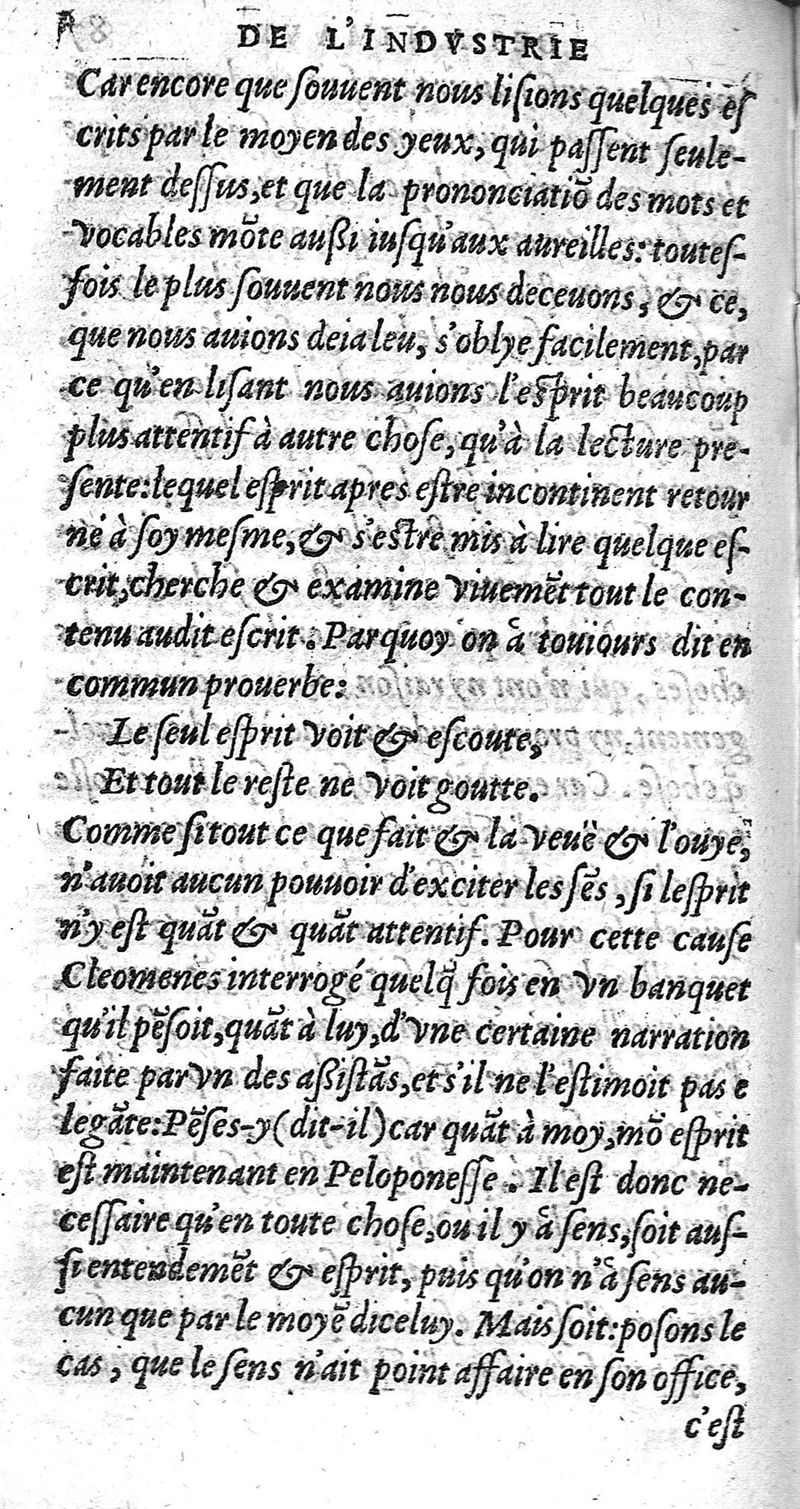 DE L'INDVSTRIE
Car encore que ſouuent nous liſions quelques eſ
crits par le moyen des yeux, qui paſſent ſeule-
ment deſſus, et que la prononciatiõ des mots et
vocables mõte außi iuſqu'aux aureilles: touteſ-
fois le plus ſouuent nous nous deceuons, & ce,
que nous auions deia leu, s'oblye facilement, par
ce qu'en liſant nous auions l'eſprit beaucoup
plus attentif à autre choſe, qu'à la lecture pre-
ſente: lequel eſprit apres eſtre incontinent retour
né à ſoy meſme, & s'eſtre mis à lire quelque eſ-
crit, cherche & examine viuemẽt tout le con-
tenu audit eſcrit. Parquoy on å touiours dit en
commun prouerbe:
Le ſeul eſprit voit & eſcoute,
Et tout le reſte ne voit goutte.
Comme ſi tout ce que fait & la veuë & l'ouye,
n'auoit aucun pouuoir d'exciter les ſẽs, ſi leſprit
n'y eſt quãt & quãt attentif. Pour cette cauſe
Cleomenes interrogé quelq̃ fois en vn banquet
qu'il pẽſoit, quãt à luy, d'vne certaine narration
faite par vn des aßiſtãs, et s'il ne l'eſtimoit pas e
legãte: Pẽſes-y (dit-il) car quãt à moy, mõ eſprit
eſt maintenant en Peloponeſſe. Il eſt donc ne-
ceſſaire qu'en toute choſe, ou il y å ſens, ſoit auſ-
ſi entendemẽt & eſprit, puis qu'on n'å ſens au-
cun que par le moyẽ diceluy. Mais ſoit: poſons le
cas, que le ſens n'ait point affaire en ſon office,
c'eſt